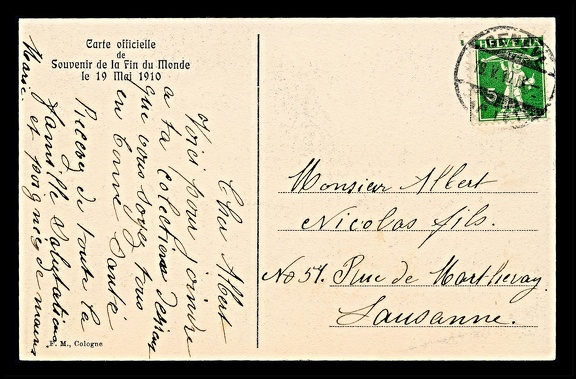 Carte officielle
de
Souvenir de la Fin du Monde
le 19 Mai 1910
Cher Albert
Voici pour joindre
a ta colection
que vous soyez tous
en bonne Santé
Recevez de toute la
famille Salutations
et poignées de mains
Marie.
F. M., Cologne
HELVETIA
5
Monsieur Albert
Nicolas fils.
No 51. Rue de Martheray.
Lausanne.